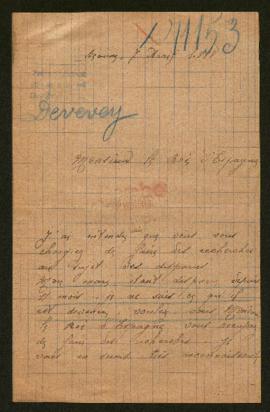 X 41153
7
Devevey
Monsieur le Roi d'Espagne
J'ai entendu que vous vous
chargiez de faire des recherches
au sujet des disparus
Mon mari étant disparu depuis
mois je ne sais ce qu'il
est devenu voulez vous Monsieur
le Roi d'Espagne vous occuper
de faire des recherches je
vous en serais très reconnaissante